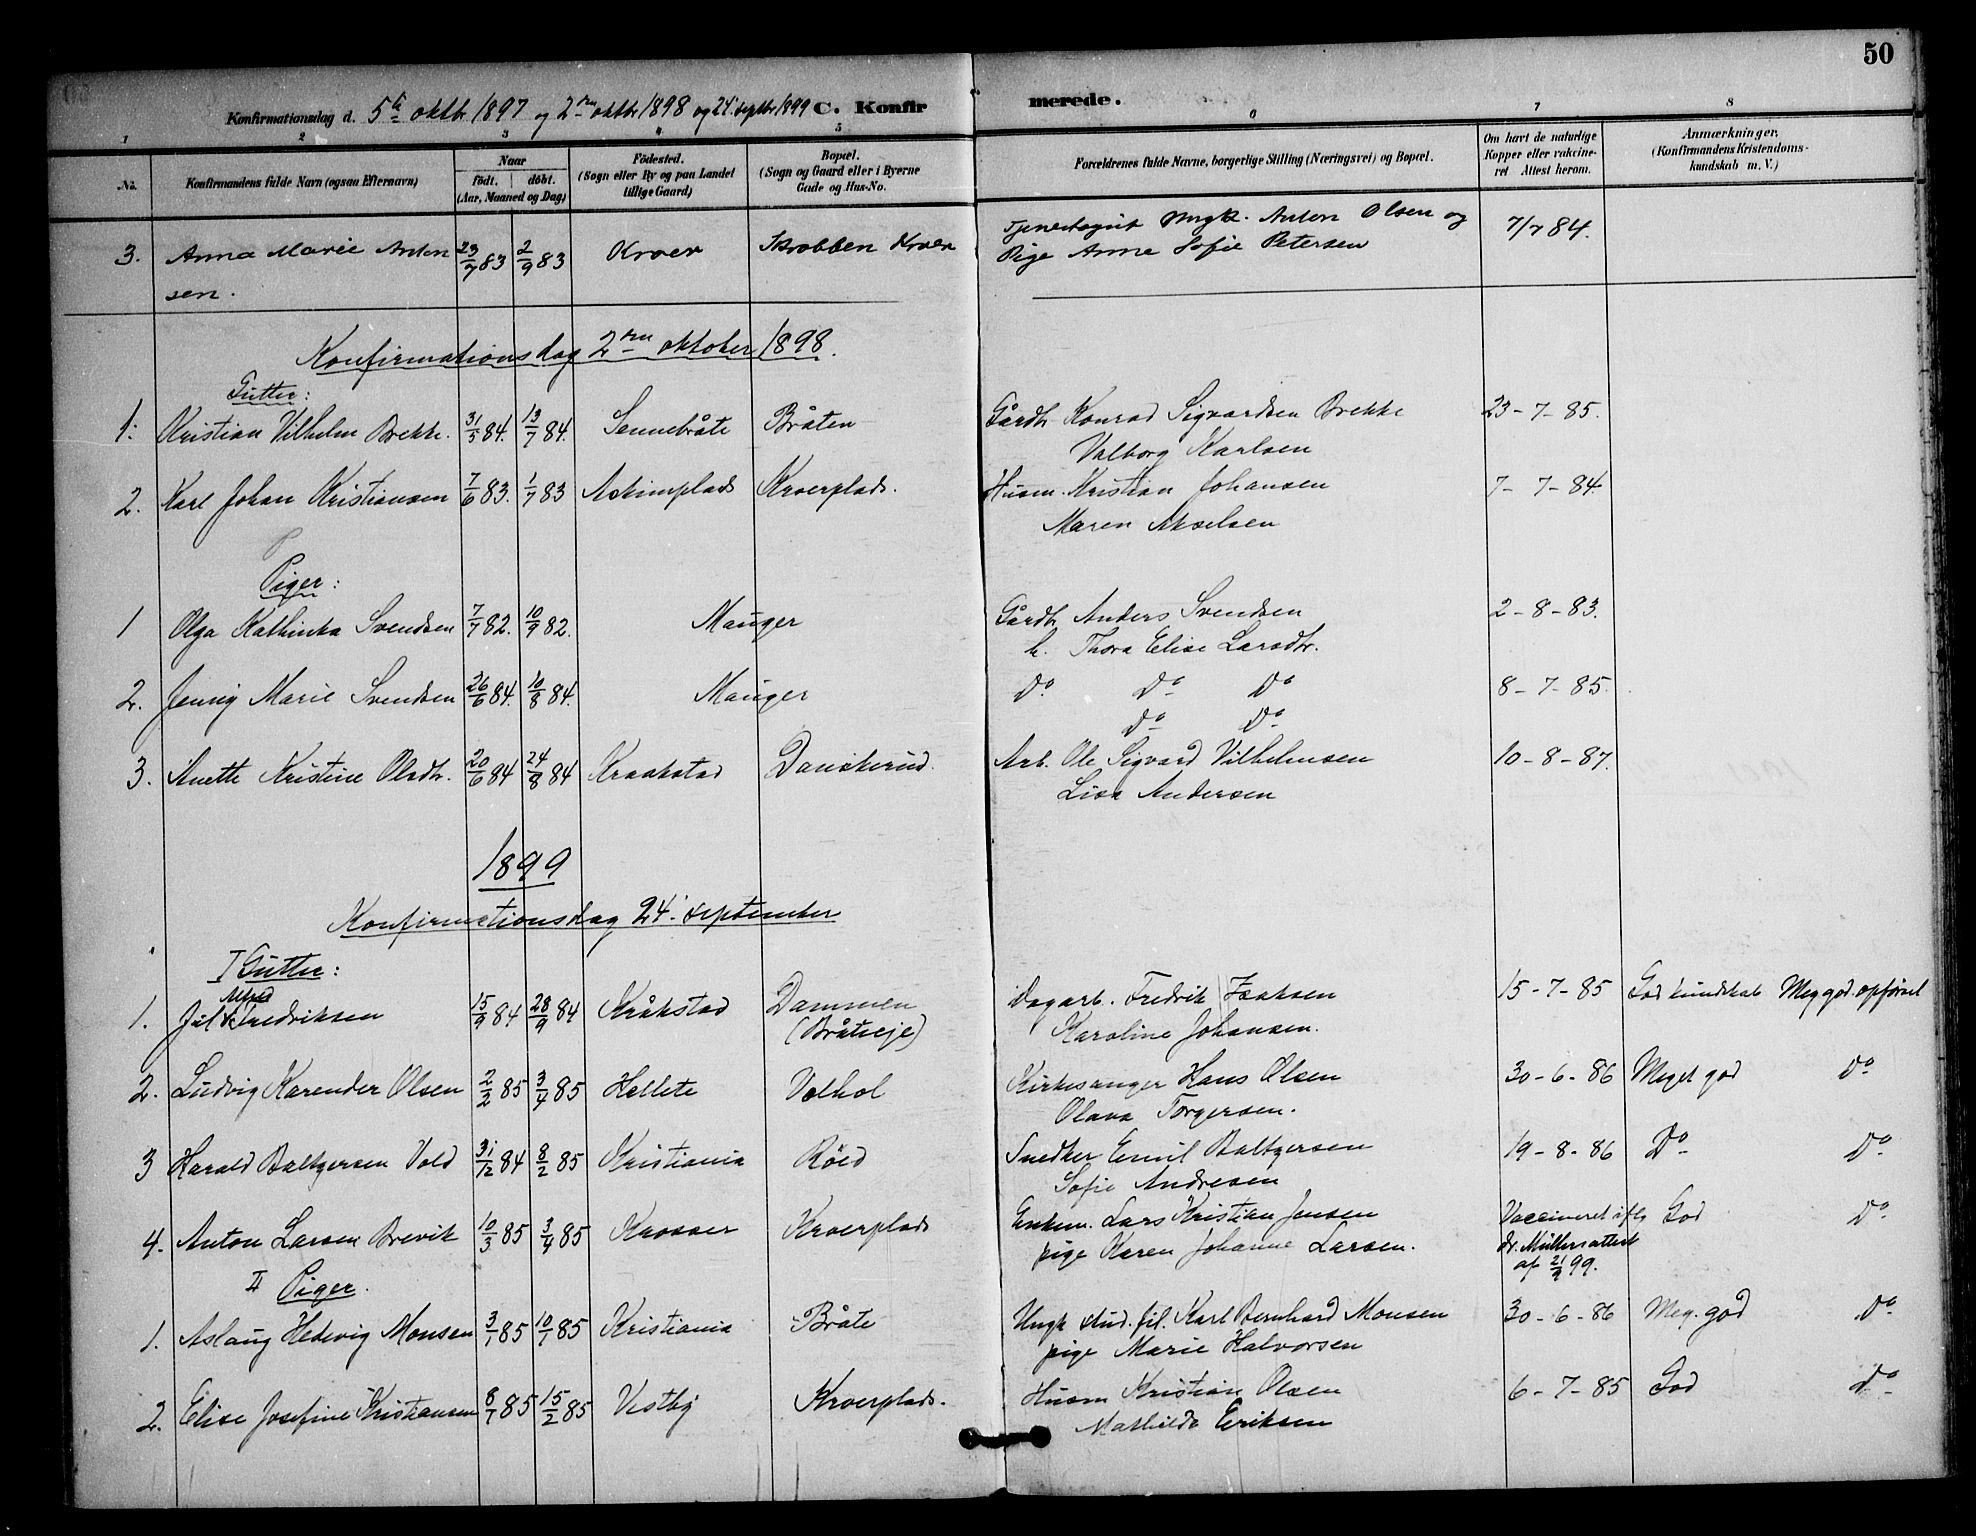 50
Konfirmationsdag d. 5te oktbr 1897 og 2den oktbr 1898 og 24. septbr 1899 C. Konfirmerede.
1 2 3 4 5 6 7 8
No. Konfirmandens fulde Navn (ogsaa Efternavn) Naar födt. döbt. (Aar, Maaned og Dag) Födested. (Sogn eller By og paa Landet tillige Gaard) Bopæl. (Sogn og Gaard eller i Byerne Gade og Hus-No. Forældrenes fulde Navne, borgerlige Stilling (Næringsvei) og Bopæl. Om havt de naturlige Kopper eller vakcineret Attest herom. Anmærkninger. (Konfirmandens Kristendomskundskab m. V.)
3. Anna Marie Anton 23/7 83 2/9 83 Kroer Skrobben Kroer Ungk. Anton Olsen og 7/7 84.
sen. Pige Anne Sofie Petersen
Konfirmationsdag 2den oktober 1898.
Gutter:
1. Kristian Vilhelm Brekke. 31/5 84. 13/7 84. Sennebråte Bråten Gårdbr. Konrad Sigvardsen Brekke 23-7-85.
Valborg Karlsen
2. Karl Johan Kristiansen 7/6 83. 1/7 83 Askimplads Kroerplads. Husm. Kristian Johansen 7-7-84.
Maren Akselsen
Piger:
1 Olga Kathinka Svendsen 7/7 82. 10/9 82. Mauger Gårdbr. Anders Svendsen 2-8-83.
h. Thora Elise Larsdtr.
2. Jenny Marie Svendsen 26/6 84. 10/8 84. Mauger Do Do Do 8-7-85.
Do Do
3. Anette Kristine Olsdtr. 20/6 84 24/8 84 Kraakstad Danskerud. Arb. Ole Sigvard Vilhelmsen 10-8-87.
Lisa Andersen
1899
Konfirmationsdag 24. september
I Gutter:
Alfred
1. Fredriksen 15/9 84 28/9 84 Kråkstad Dammen Dagarb. Fredrik Isaksen 15-7-85 God kundskab Meg. god. opførsel
(Bråteeje) Karoline Johansen.
2. Ludvig Karender Olsen 2/2 85 3/4 85 Hellete Volhol Kirkesanger Hans Olsen 30-6-86 Meget god Do
Olava Torgersen.
3 Harald Baltzersen Vold 31/12 84 8/2 85 Kristiania Röed Snedker Emil Baltzersen 19-8-86 Do Do
Sofie Andresen
4. Anton Larsen Brevik 10/3 85 3/4 85 Krosser Kroerplads Enkem. Lars Kristian Jensen Vaccineret iflg God Do
pige Karen Johanne Larsen. dr. Müllers attest
af 21/9 99.
II Piger.
1. Aslaug Hedevig Monsen 3/1 85 10/1 85 Kristiania Bråte Ungk stud. fil. Karl Bernhard Monsen 30-6-86 Meg. god Do
pige Marie Halvorsen
2. Elise Josefine Kristiansen 8/1 85 15/2 85 Vestby Kroerplads. Husm Kristian Olsen 6-7-85 God Do
Mathilde Eriksen